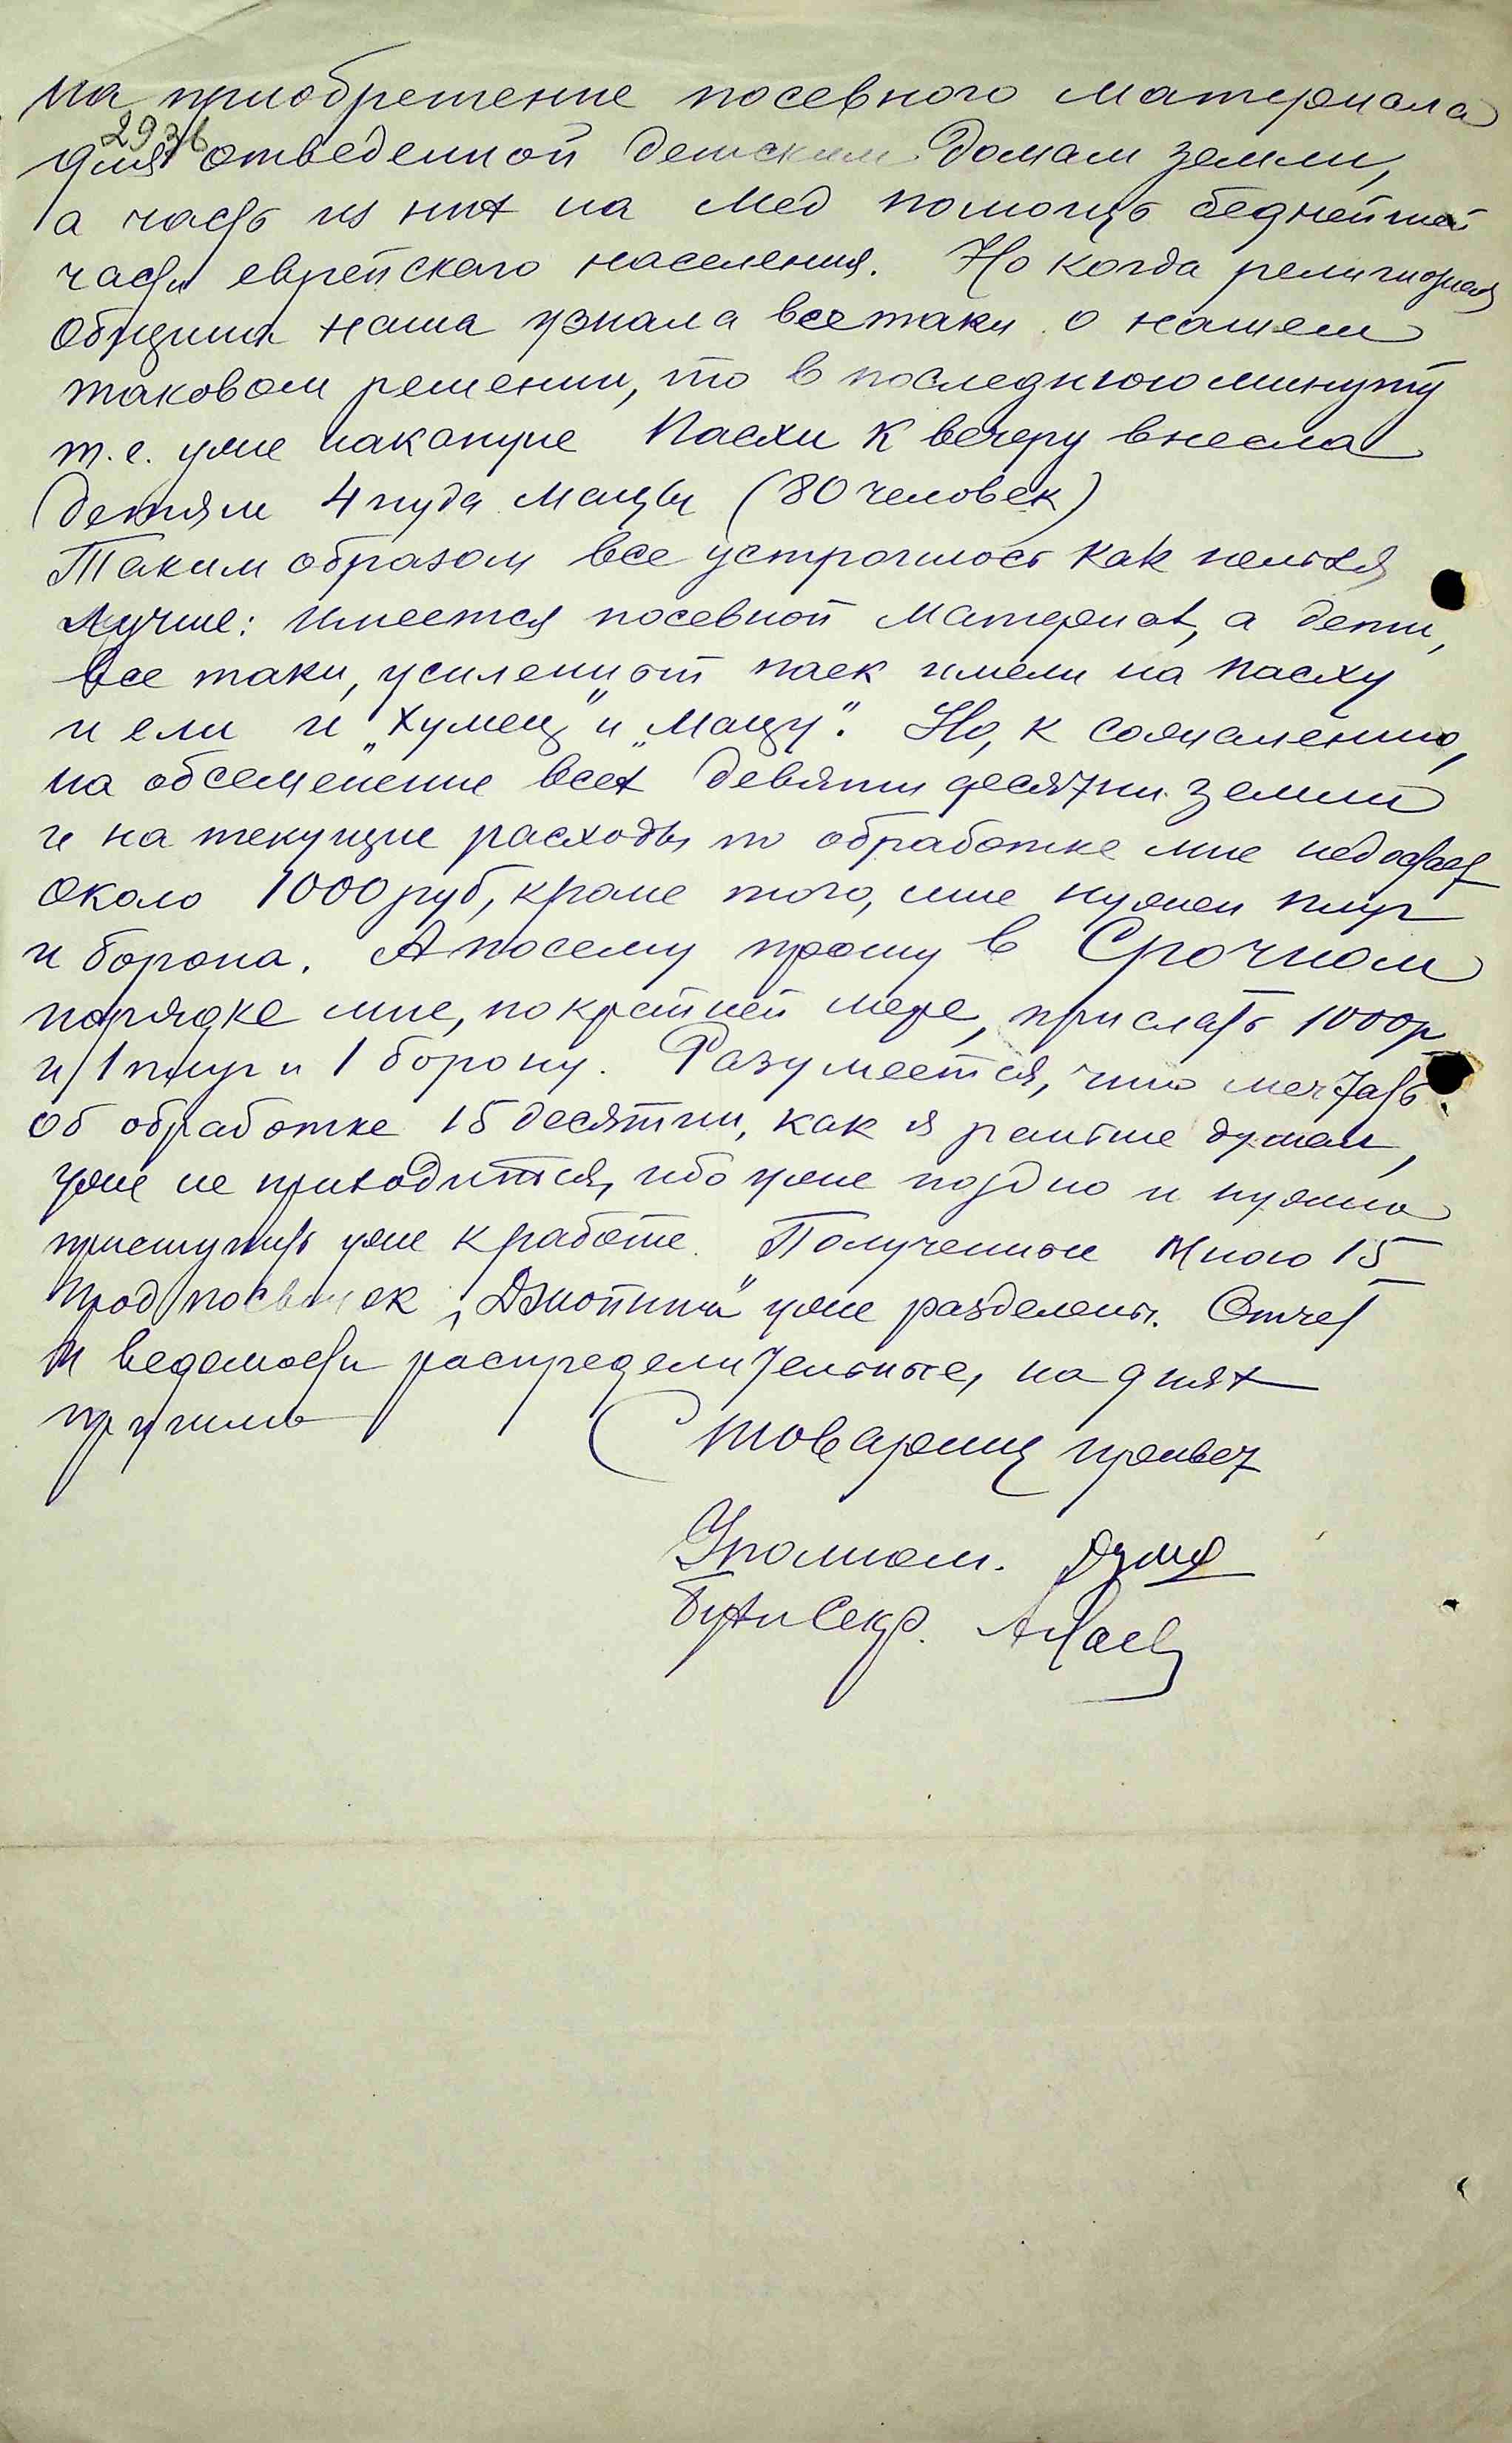 на приобретение посевного материала
293б
для отведенной детским домам земли,
а часть из них на мед помощь беднейшей
части еврейского населения. Но когда религиозная
община наша узнала всетаки о нашем
таковом решении, то в последнюю минуту
т.е. уже накануне Пасхи к вечеру внесла
детям 4 пуда мацы (80 человек)
Таким образом все устроилось как нельзя
лучше: имеется посевной материал, а дети,
все таки, усиленный паек имели на пасху
и ели и „хумец" и „мацу". Но, к сожалению,
на обсеменение всех девяти десятин земли
и на текущие расходы по обработке мне недостает
около 1000 руб, кроме того, мне нужен плуг
и борона. А посему прошу в Срочном
порядке мне, по крайней мере, прислать 1000р
и 1 плуг и 1 борону. Разумеется, что мечтать
об обработке 15 десятин, как я раньше думал,
уже не приходится, ибо уже поздно и нужно
приступить уже к работе. Полученные мною 15
прод посылок „Джойнта" уже разделены. Отчет
и ведомости распределительные, на днях
пришлю
С товарищ приветом
Уполном.
Секр.